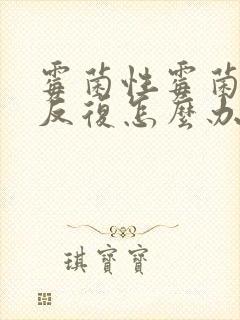 霉菌性霉菌
反復怎麼办
琪寶寶